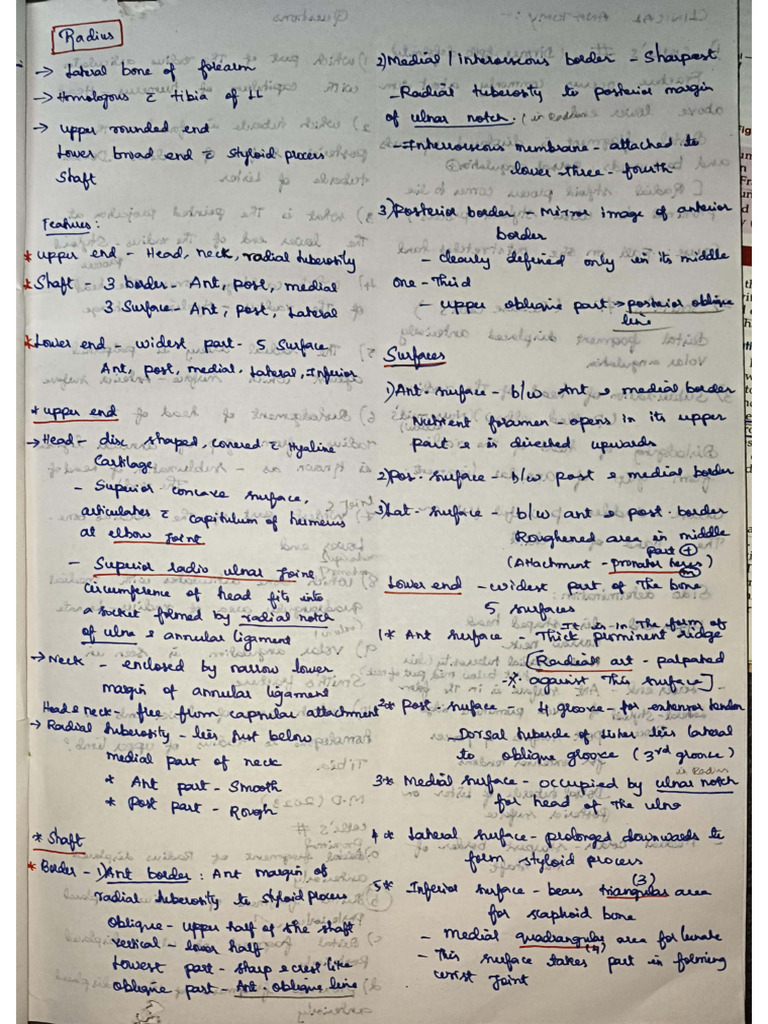 Radius
→ Lateral bone of forearm
→ Homologous c̄ tibia of LL
→ upper rounded end
Lower broad end c̄ styloid process
Shaft
Features:
* upper end - Head, neck, radial tuberosity
* Shaft - 3 border - Ant, post, medial
3 Surface - Ant, post, Lateral
* Lower end - widest part - 5 Surface
Ant, post, medial, Lateral, Inferior
* upper end
→ Head - disc shaped, covered c̄ Hyaline
Cartilage
- Superior concave surface,
articulates c̄ capitulum of humerus
at elbow joint
- Superior radio ulnar joint
Circumference of head fits into
a socket formed by radial notch
of ulna & annular ligament
→ Neck - enclosed by narrow lower
margin of annular ligament
Head & neck - free from capsular attachment
→ Radial tuberosity - lies just below
medial part of neck
* Ant part - Smooth
* Post part - Rough
* Shaft
* Border - 1) Ant border : Ant margin of
radial tuberosity to styloid process
Oblique - upper half of the shaft
Vertical - lower half
Lowest part - sharp & crest like
oblique part - Ant. oblique line
2) Medial / interosseous border - Sharpest
- Radial tuberosity to posterior margin
of ulnar notch.
- Interosseous membrane - attached to
lower three - fourth
3) Posterior border - Mirror image of anterior
border
- clearly defined only in its middle
one - Third
- upper oblique part → posterior oblique
line
Surfaces
1) Ant. surface - b/w Ant & medial border
Nutrient foramen - opens in its upper
part & is directed upwards
2) Pos. surface - b/w post & medial border
3) Lat. surface - b/w ant & post. border
Roughened area in middle
part
(Attachment - pronator teres)
Lower end - widest part of The bone
5 surfaces
1* Ant surface - It is in The form of
Thick prominent ridge
[Radial art - palpated
against This surface]
2* Post. surface - 4 groove - for extensor tendon
- Dorsal tubercle of Lister lies lateral
to oblique groove (3rd groove)
3* Medial surface - occupied by ulnar notch
in Radius
for head of The ulna
4* Lateral surface - prolonged downwards to
form styloid process
5* Inferior surface - bears triangular area
(3)
for scaphoid bone
- Medial quadrangular area for lunate
(4)
- This surface takes part in forming
wrist joint